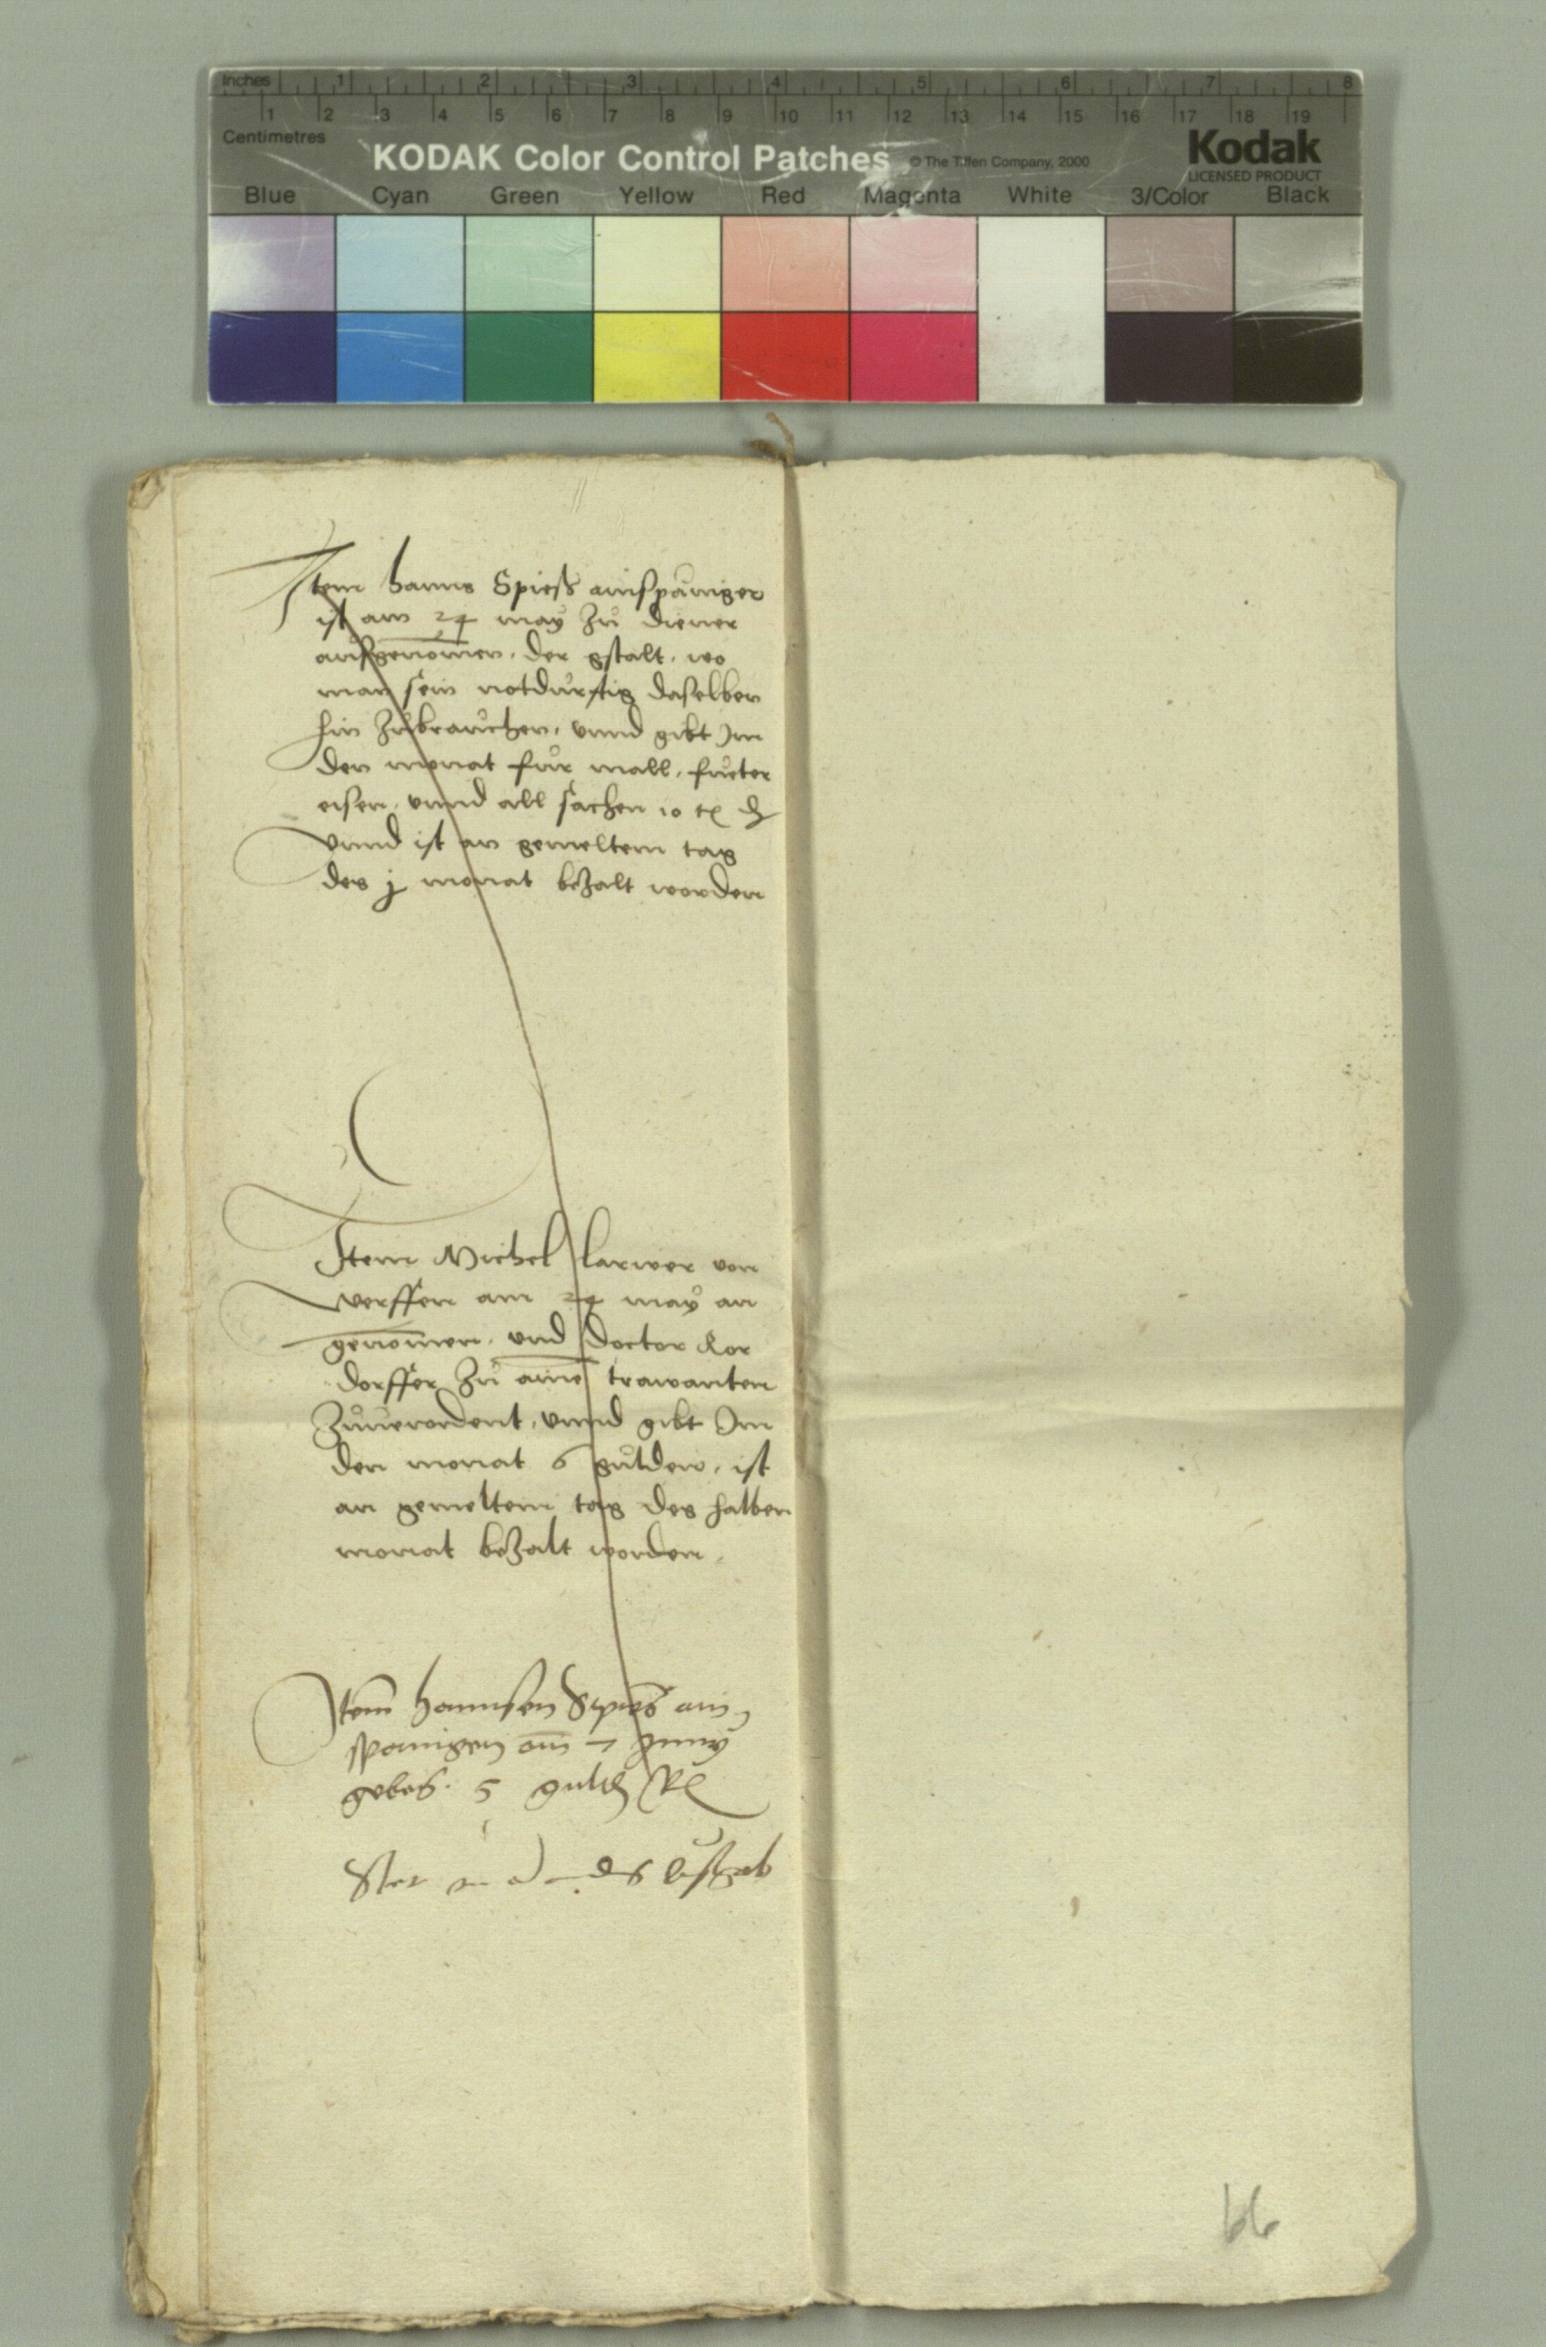 Inches 1 2 3 4 5 6 7 8
1 2 3 4 5 6 7 8 9 10 11 12 13 14 15 16 17 18 19
Centimetres
KODAK Color Control Patches © The Tiffen Company, 2000 Kodak
LICENSED PRODUCT
Blue Cyan Green Yellow Red Magenta White 3/Color Black
Item hanns Spieß ainspänniger
ist am 24 maÿ zů diener
aufgenomen. der gstalt. wo
man sein notdürftig daselben
hin zůbrauchen. vnnd gibt Im
den monat für mall. fueter
eisen. vnnd all sachen 10
vnnd ist an gemeltem tag
des j monat bezalt worden
Item Michel larwer von
werffen am 24 maÿ an
genomen. vnd doctor Kor
dorffer zů aine trawanten
Zůuerordent. vnnd gibt Im
den monat 6 gulden. ist
an gemeltem tag des halben
monat bezalt worden.
Item hannsen Spies ain
spanigen am Junÿ
geben. 5
66